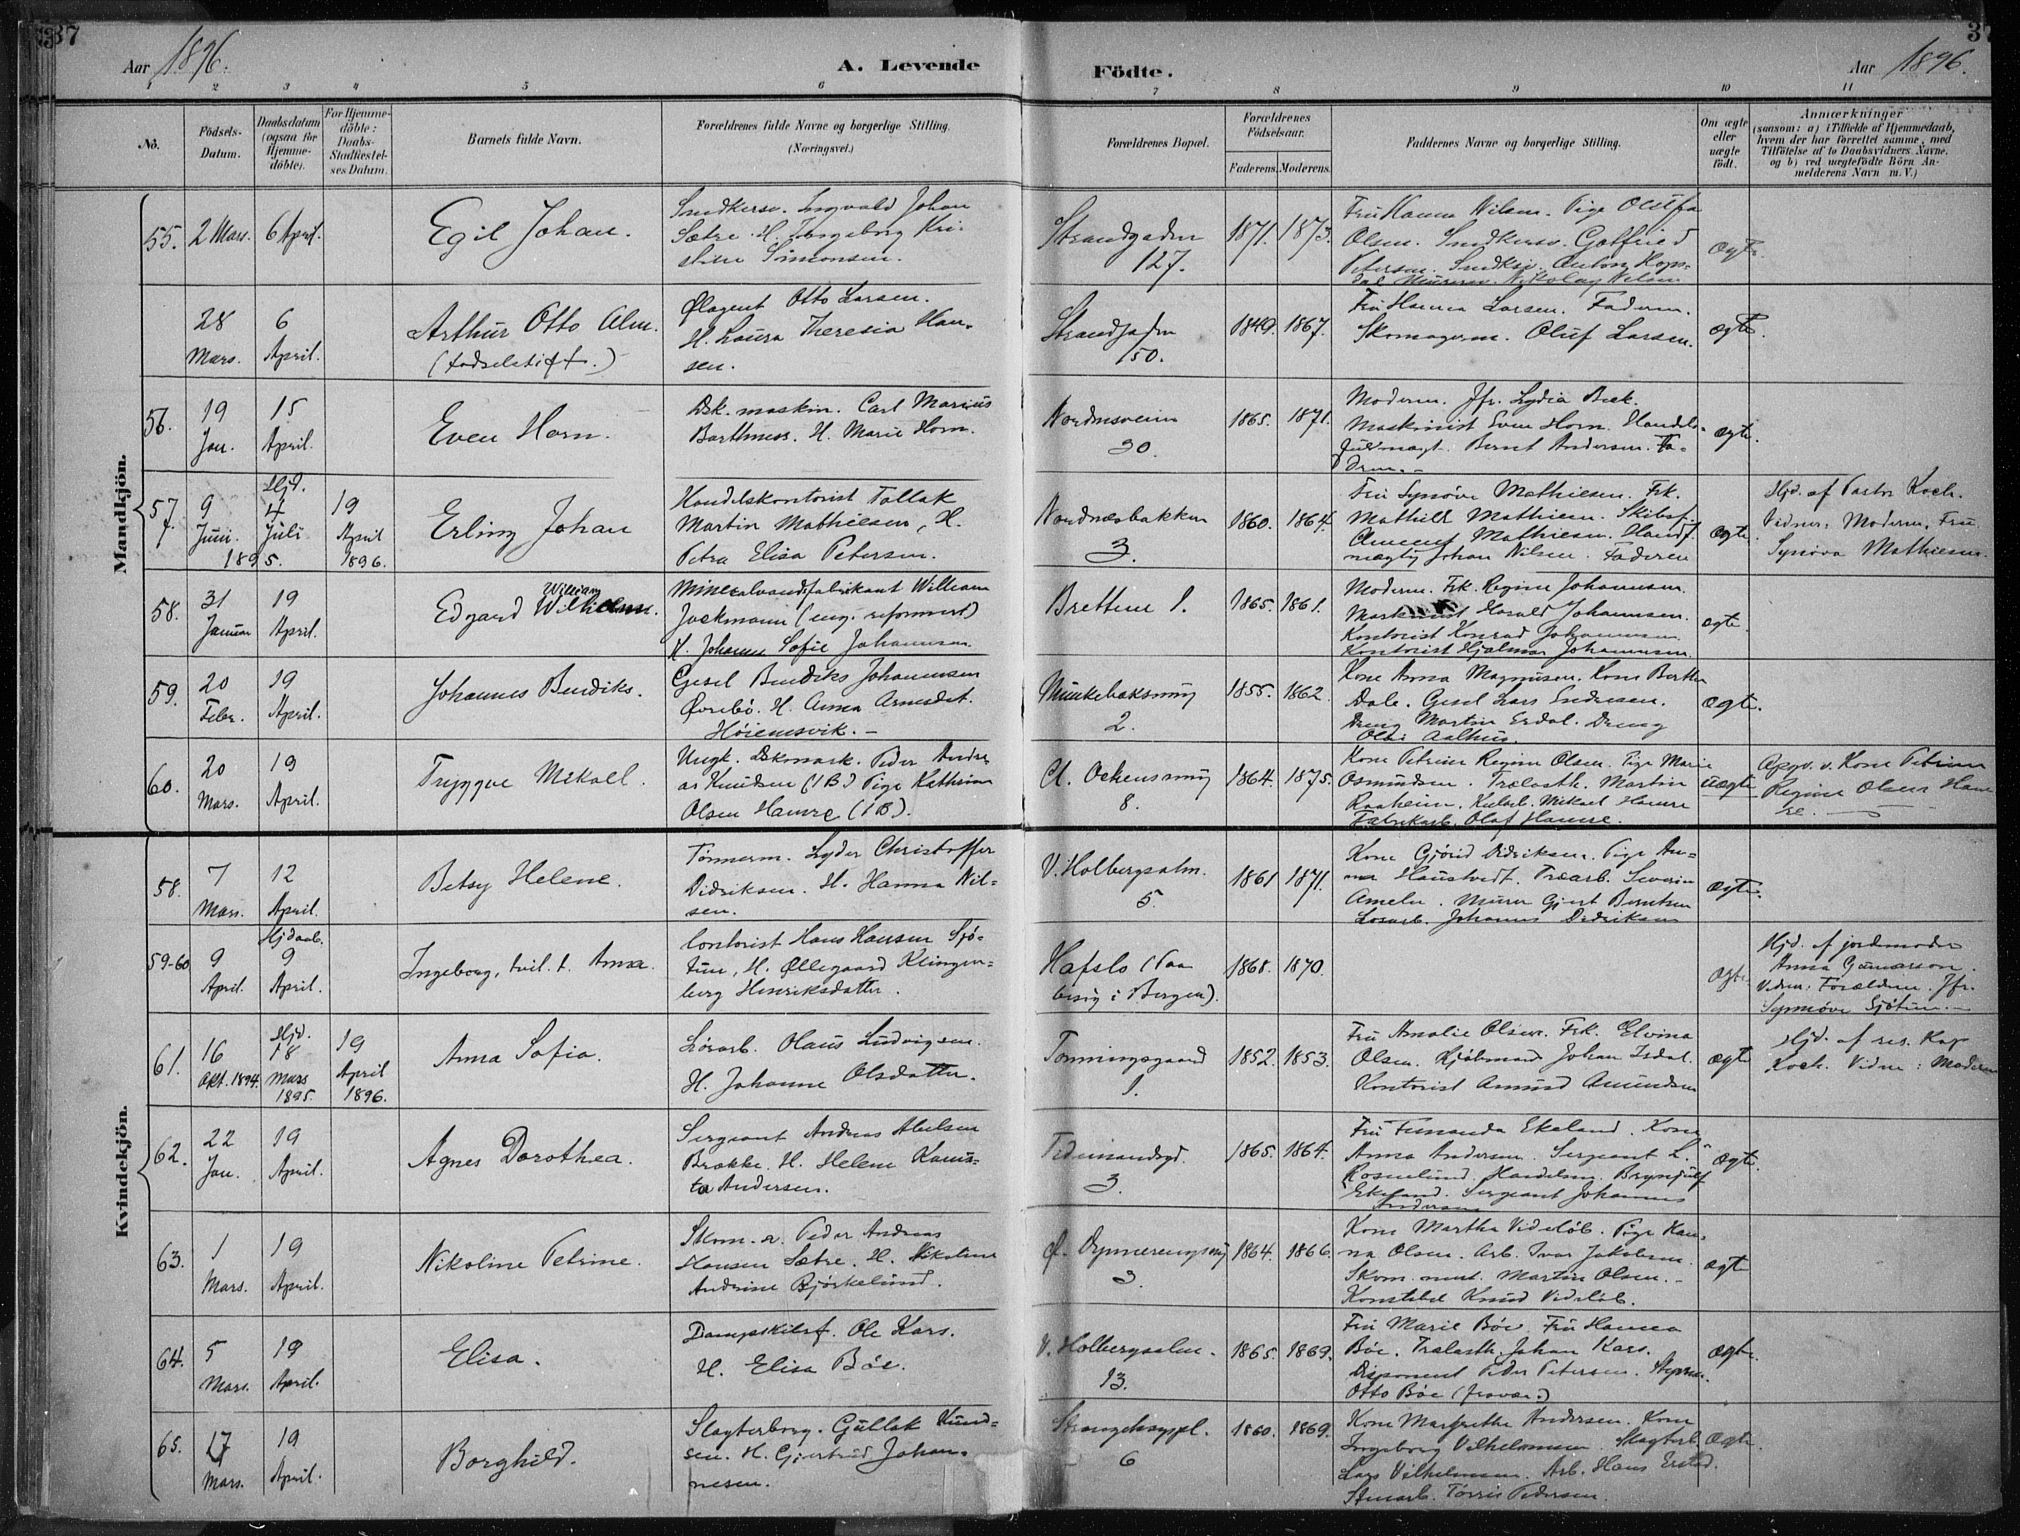 37
37
Aar 1896.
A. Levende
Födte.
Aar 1896.
1 2 3 4 5 6 7 8 9 10 11
No.
Födsels-
Datum.
Daabsdatum
(ogsaa for
Hjemme-
döbte).
For Hjemme-
döbte:
Daabs-
Stadfæstel-
ses Datum.
Barnets fulde Navn.
Forældrenes fulde Navne og borgerlige Stilling.
(Næringsvei.)
Forældrenes Bopæl.
Forældrenes
Födselsaar.
Faderens. Moderens.
Faddernes Navne og borgerlige Stilling.
Om ægte
eller
uægte
født.
Anmærkninger
(saasom: a) i Tilfælde af Hjemmedaab,
hvem der har forrettet samme, med
Tilføielse af to Daabsvidners Navne,
og b) ved uægtefødte Börn An-
melderens Navn m. V.)
Mandkjön.
55.
2 Mars.
6 April.
Egil Johan.
Snedkersv. Ingvald Johan
Sætre. H. Ingeborg Kri-
stine Simonsen.
Strandgaden
127.
1871. 1873.
Fru Hanna Nilsen. Pige Olufa
Olsen. Snedkersv. Gotfried
Petersen. Anton
Nikolay Nilsen
ægte.
28
Mars.
6
April.
Arthur Otto Alm.
(fødselstift.)
Ølagent Otto Larsen.
H. Laura Theresia Han-
sen.
Strandgaden
150.
1849. 1867.
Fru Hanna Larsen. Faderen.
Skomagerm. Oluf Larsen.
ægte.
56.
19
Jan.
15
April.
Even Horn.
Dsk. maskin. Carl Marius
Barthmess. H. Marie Horn.
Nordnesveien
30.
1865. 1871.
Moderen. Jfr. Lydia Beck.
Maskinist Even Horn. Handels-
fuldmægt. Bernt Andersen. Fa-
deren.
ægte.
57.
9
Juni.
1895.
Hjd.
4
Juli
19
April
1896.
Erling Johan
Handelskontorist Tollak
Martin Mathiesen, H.
Petra Elisa Petersen.
Nordnæsbakken
3.
1860. 1864.
Fru Synøve Mathiesen. Frk.
Mathilde Mathiesen. Skibsf.
Clement Mathiesen. Handf.
mægtig Johan Nilsen. Faderen
ægte
Hjd. af Pastor Koch.
Vidner: Moderen, Fru
Synøva Mathiesen.
58.
31
Januar
19
April.
William
Edgard Wilhelm.
Mineralvandsfabrikant William
Jackmann (eng. reformert)
H. Johanne Sofie Johannesen.
Brettene 1.
1865. 1861.
Moderen. Frk. Regine Johannesen.
Maskinist Harald Johannesen.
Kontorist Konrad Johannesen
Kontorist Hjalmar Johannesen.
ægte.
59.
20
Febr.
19
April.
Johannes Bendiks.
Gesel Bendiks Johannesen
Øvrebø. H. Anna Arnesdat.
Høiemsvik.
Munkebæksmug
2.
1855. 1862.
Kone Anna Magnusen. Kone Berthe
Dale. Gesel Lars Endresen.
Dreng Martin Erdal. Dreng
Olai Aalhus.
ægte.
60.
20
Mars.
19
April.
Tryggve Mikael.
Ungk. Peder Andre
as Knudsen (1B) Pige Kathrine
Olsen Hamre (1B).
8.
1864. 1875.
Kone Petrine Regine Olsen. Pige Marie
Osmundsen. Trælasth. Martin
Raaheim. Mikael Hamre
Fabrikarb. Olaf Hamre.
uægte
Opgv. v. Kone Petrine
Regine Olsen Ham
re.
Kvindekjön.
58.
7
Mars.
12
April.
Betsy Helene.
Tømmerm. Lyder Christoffer
Didriksen. H. Hanna Nil-
sen.
V. Holbergsalm.
5.
1861 1871.
Kone Gjørid Didriksen. Pige An-
na Haustvedt. Træarb. Severin
Ameln. Murer Gjert Berntsen
Løsarb. Johannes Didriksen
ægte.
59-60
9
April.
Hjdaab.
9
April.
Ingeborg, tvil. t. Anna.
Contorist Hans Hansen Sjø-
tun, H. Øllegaard Klingen-
berg Henriksdatter.
Hafslo (Paa
besøg i Bergen).
1868. 1870.
ægte.
Hjd. af jordmoder
Anna Gunnarson.
Vidner: Forældrene. Jfr.
Synnøve Sjøtun.
61.
16
Okt. 1894.
Hjd.
18
Mars
1895.
19
April
1896.
Anna Sofia.
Løsarb. Olaus Ludvigsen.
H. Johanne Olsdatter.
Tonningsgaard
1.
1852. 1853.
Fru Amalie Olsen. Frk. Elvina
Olsen. Kjøbmand Johan Isdal.
Kontorist Amund Amundsen
ægte
Hjd. af res. Kap
Koch. Vidne: Moderen
62.
22
Jan.
19
April.
Agnes Dorothea.
Sergeant Andreas Nielsen
Brække. H. Helene Kons-
ta Andersen.
Ferdinandsgd.
3.
1865. 1864.
Fru Fernanda Ekeland. Kone
Anna Andersen. Sergeant L.
Rosenlund. Handelsm. Brynjulf
Ekeland. Sergeant Johannes
Andersen
ægte.
63.
1
Mars.
19
April.
Nikoline Petrine.
Skom. Peder Andreas
Hansen Sætre. H. Nikoline
Andrine Bjørkelund.
3
1864. 1866.
Kone Martha Videløb. Pige Han-
na Olsen. Arb. Ivar Jakobsen.
Skom. Martin Olsen.
Konstabel Knud Videløb.
ægte
64.
5
Mars.
19
April.
Elisa.
Dampskibsf. Ole Kars.
H. Elisa Bøe.
V. Holbergsalm.
13.
1865. 1869.
Fru Marie Bøe. Fru Hanna
Bøe. Trælasth. Johan Kars.
Disponent Peder Petersen.
Otto Bøe (fravær.)
ægte.
65.
17
Mars.
19
April.
Borghild.
Slagterborg. Gullak Knud-
sen. H. Gjertrud Johan-
nesen.
6
1860. 1869.
Kone Margrethe Andersen. Kone
Ingeborg Vilhelmsen. Slagterb.
Lars Vilhelmsen. Arb. Hans Ersted.
Stenarb. Tørris Pedersen.
ægte.